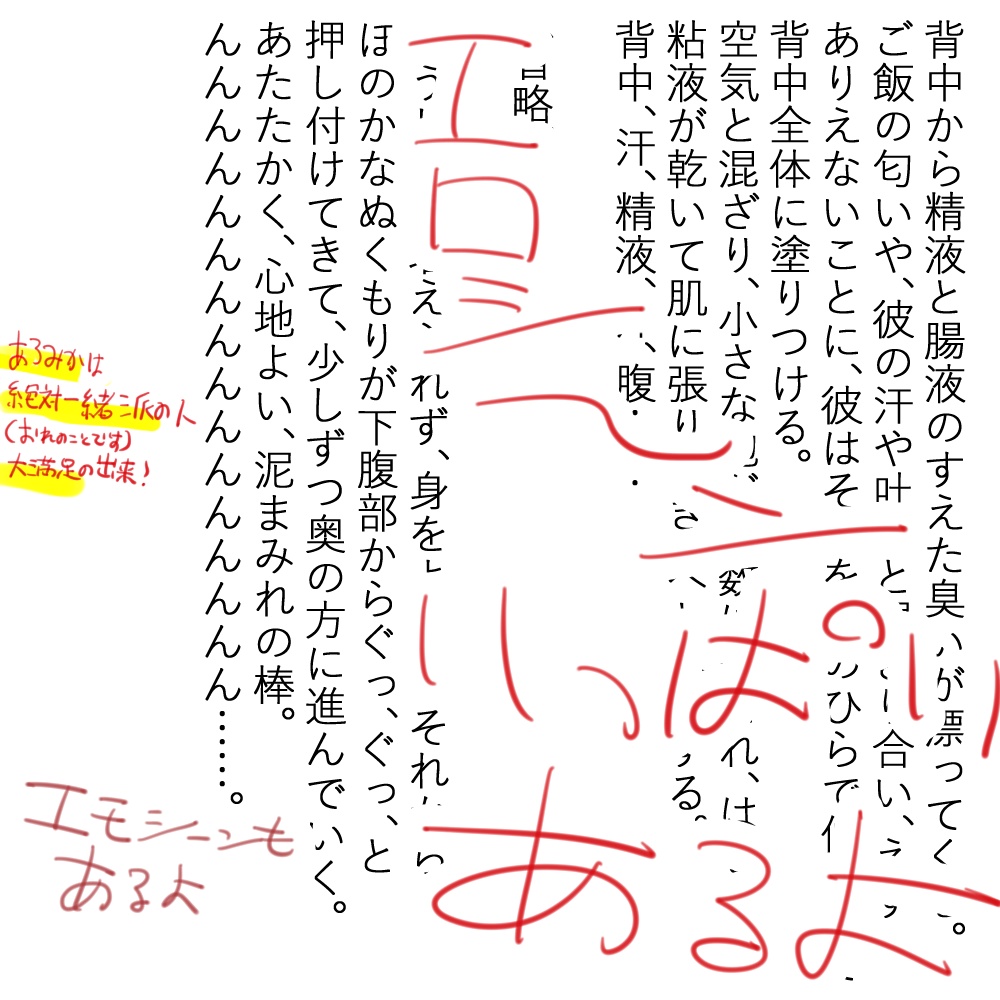 背中から精液と腸液のすえた臭いが漂ってく。
ご飯の匂いや、彼の汗や叶 と 合い、
ありえないことに、彼はそ を のひらで
背中全体に塗りつける。
空気と混ざり、小さな 数 れ、け
粘液が乾いて肌に張り る。
背中、汗、精液、 、腹
略
う え、 れず、身を それ ら
ほのかなぬくもりが下腹部からぐっ、ぐっ、と
押し付けてきて、少しずつ奥の方に進んでいく。
あたたかく、心地よい、泥まみれの棒。
んんんんんんんんんんんんんんんん……。
エロシーン
いっぱい
あるよ
あろみかは
絶対一緒派の人
(おれのことです)
大満足の出来!
エモシーンも
あるよ